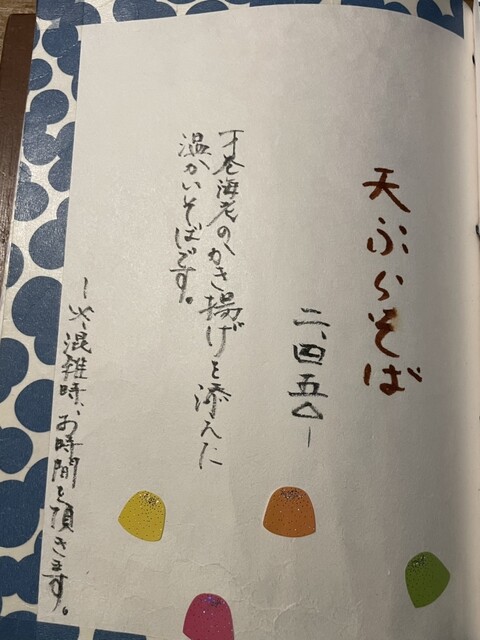 天ぷらそば
二、四五〇ー
才巻海老のかき揚げを添えた
温かいそばです。
混雑時、お時間を頂きます。